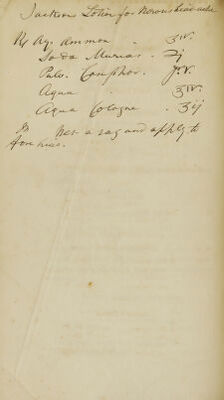 Jacksons Lotion for Nervous head-ache
℞ Aq. Ammon. ʒiv.
Soda Murias. ʒij
Pulv. Camphor. gr.v.
Aqua . ʒiv.
Aqua Cologne . ʒij
M Wet a rag and apply to
forehead.